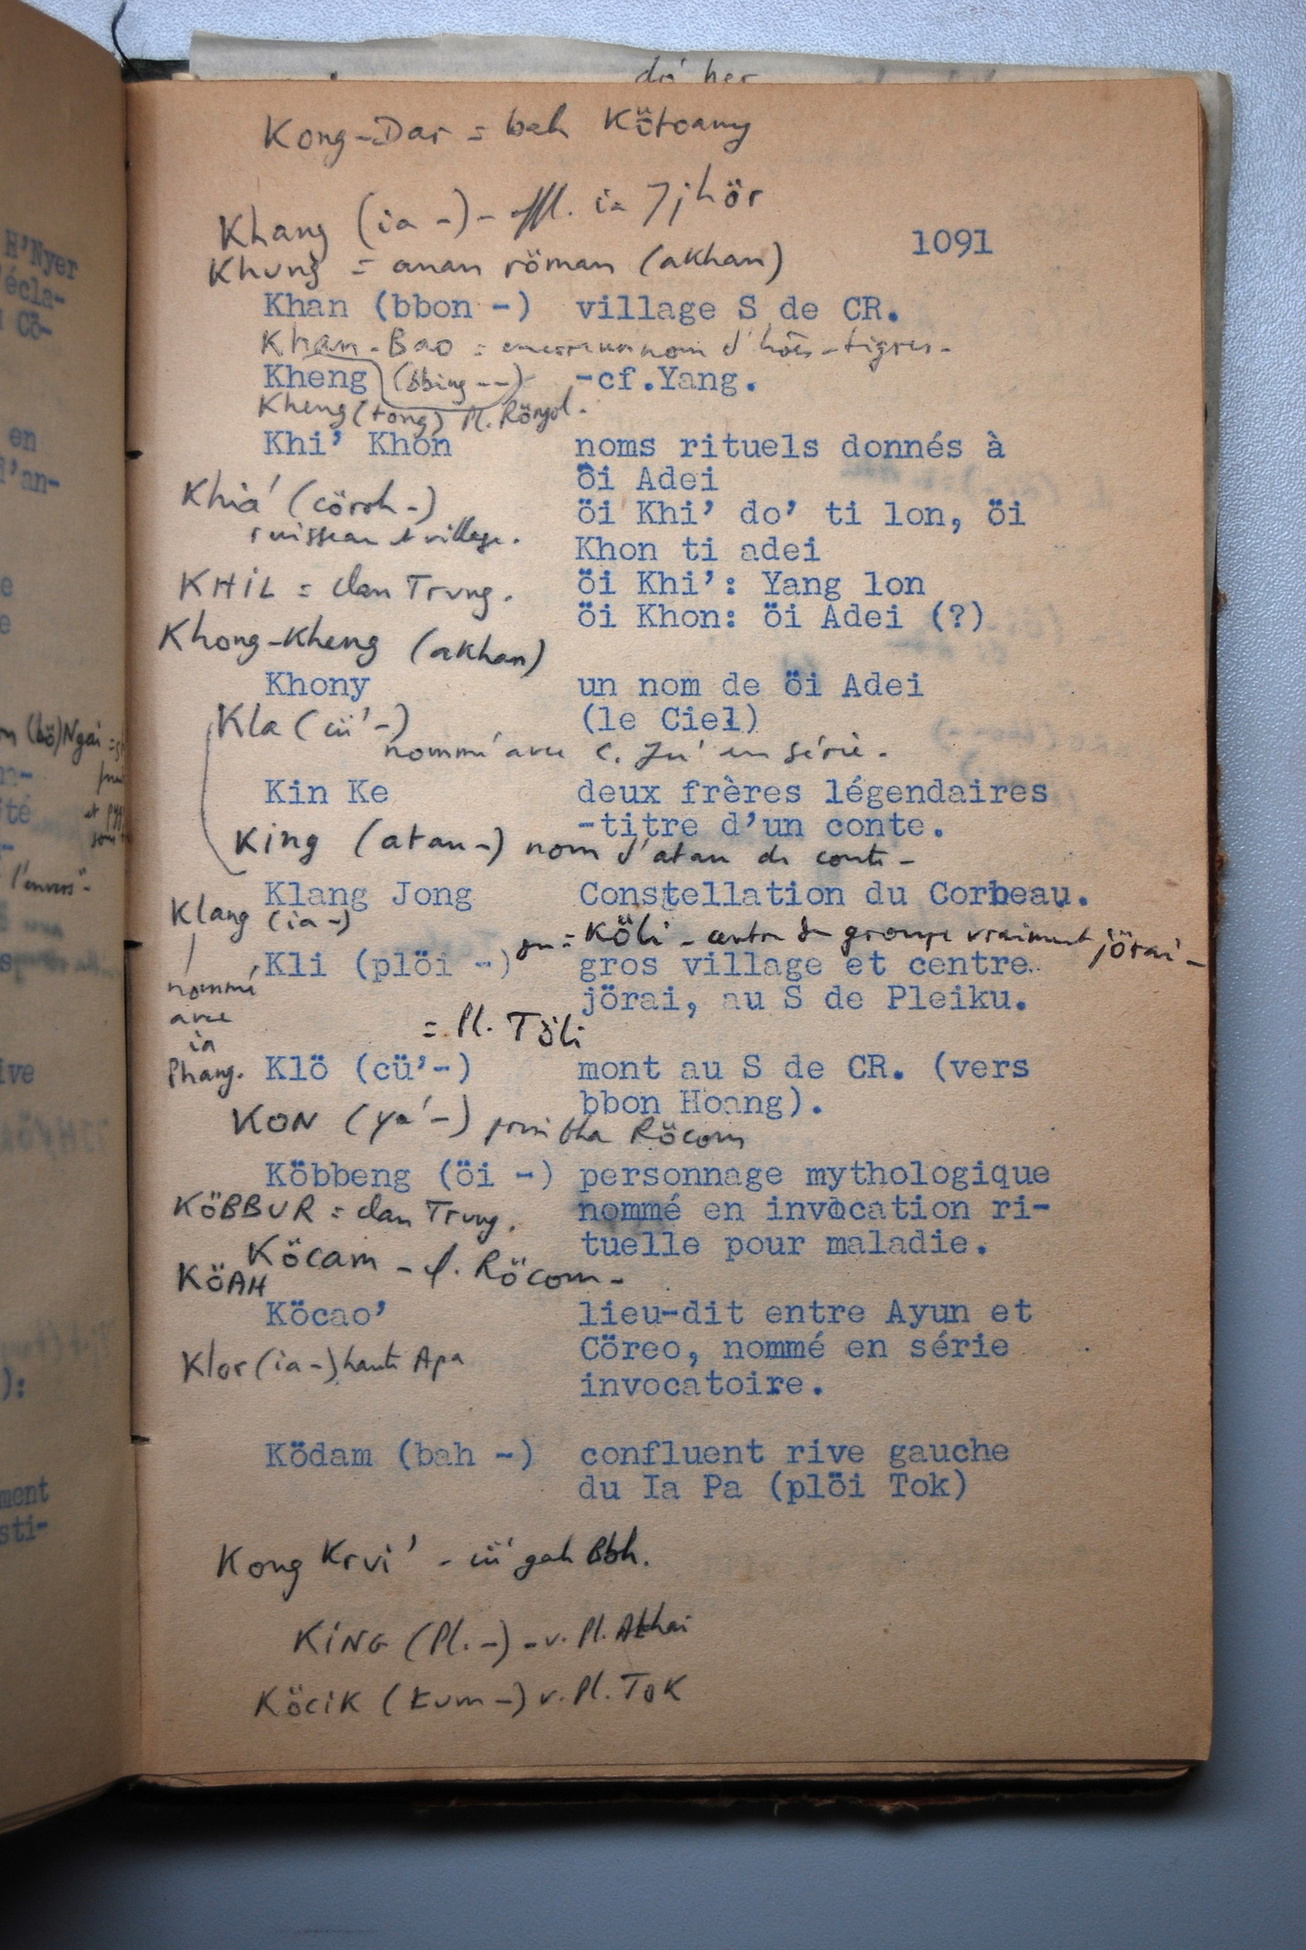 do' her
Kong-Dar = bah Kötoang
Khang (ia -) - affl. ia Jjhör
1091
Khung = anan röman (akhan)
Khan (bbon -) village S de CR.
Kham-Bao = nom d'hôes-tigres-
Kheng (bbing --) -cf.Yang.
Kheng (tong) Pl. Röngol.
Khi' Khon noms rituels donnés à
öi Adei
Khia' (cöroh -)
öi Khi' do' ti lon, öi
ruisseau et village.
Khon ti adei
KHIL = clan Trung.
öi Khi': Yang lon
öi Khon: öi Adei (?)
Khong-Kheng (akhan)
Khony un nom de öi Adei
Kla (cü'-) (le Ciel)
nommé avec c. Ju' en série.
Kin Ke deux frères légendaires
-titre d'un conte.
King (atau-) nom d'atau de conte -
Klang Jong Constellation du Corbeau.
Klang (ia -)
ou = Köli - centre du groupe vraiment jörai -
Kli (plöi -) gros village et centre
nommé
avec
ia
Phang.
jörai, au S de Pleiku.
= Pl. Töli
Klö (cü'-) mont au S de CR. (vers
bbon Hoang).
KON (ya'-) Röcom
Köbbeng (öi -) personnage mythologique
KÖBBUR = clan Trung.
nommé en invocation ri-
tuelle pour maladie.
Köcam - cf. Röcom -
KÖAH
Köcao' lieu-dit entre Ayun et
Cöreo, nommé en série
Klor (ia -) haute Apa
invocatoire.
Ködam (bah -) confluent rive gauche
du Ia Pa (plöi Tok)
Kong Krvi' - cü' gah Bbh.
KING (Pl. -) - v. Pl. Akhai
KöciK (Kum -) v. Pl. ToK
H'Nyer
'écla-
Cö-
en
l'an-
(bö)Ngai
ité
l'envers"-
ive
):
ment
sti-